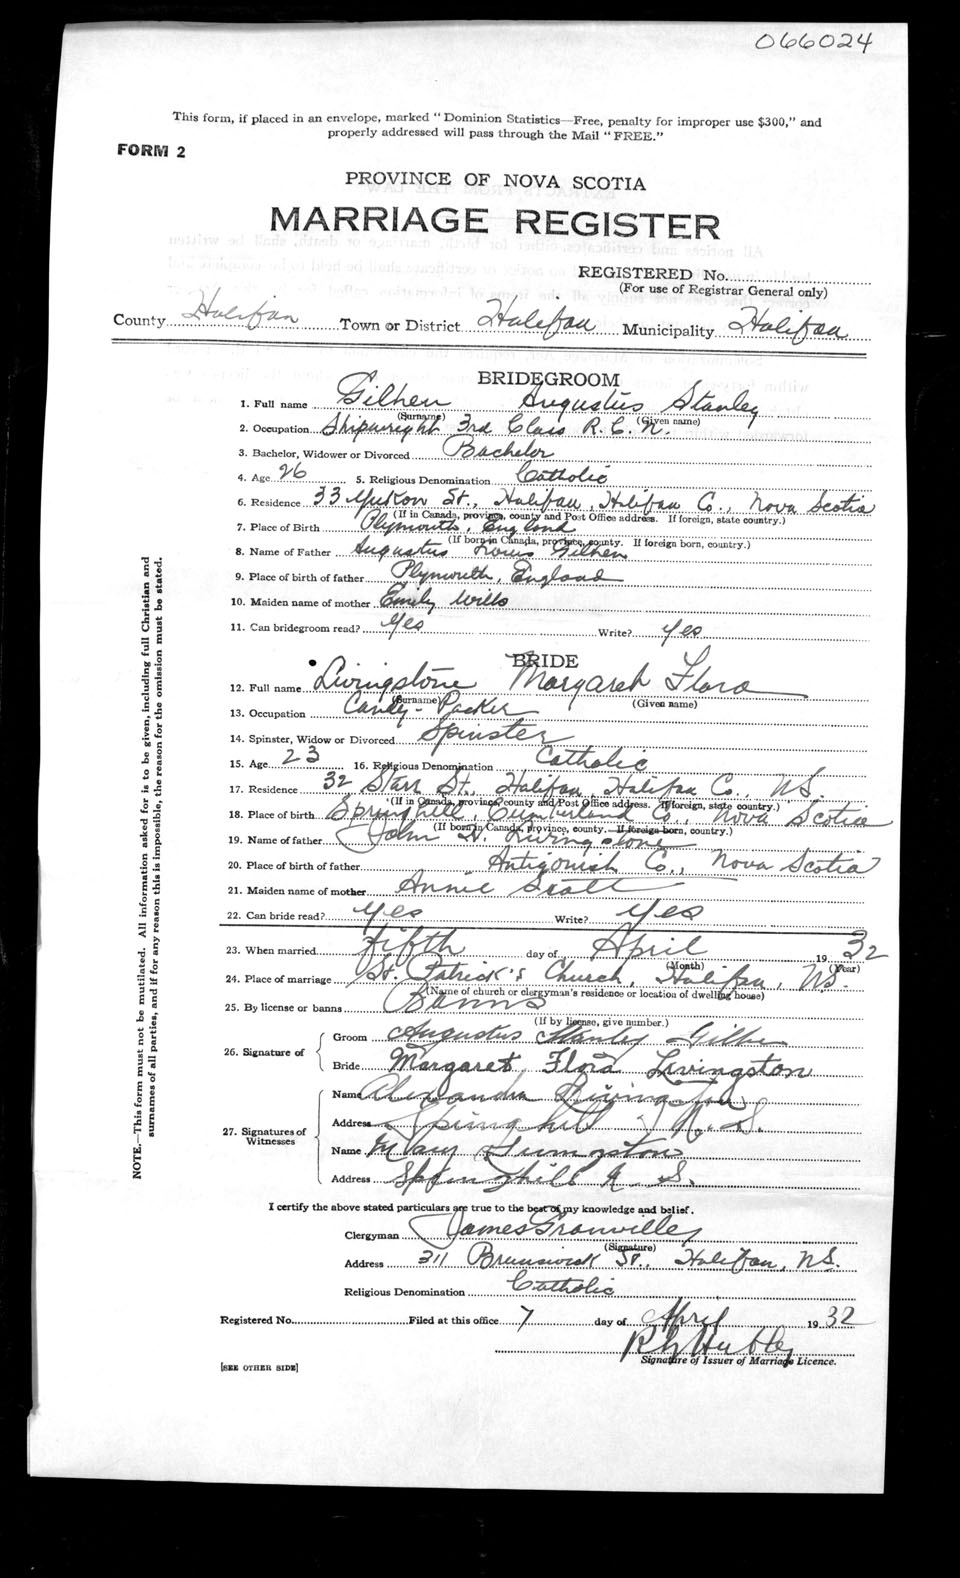 066024
This form, if placed in an envelope, marked "Dominion Statistics—Free, penalty for improper use $300," and
properly addressed will pass through the Mail "FREE."
FORM 2
PROVINCE OF NOVA SCOTIA
MARRIAGE REGISTER
REGISTERED No.
(For use of Registrar General only)
County Halifax Town or District Halifax Municipality Halifax
BRIDEGROOM
1. Full name Gilhen Augustus Stanley
(Surname) (Given name)
2. Occupation Shipwright 3rd Class R.C.N.
3. Bachelor, Widower or Divorced Bachelor
4. Age 26 5. Religious Denomination Catholic
6. Residence 33 Yukon St., Halifax, Halifax Co., Nova Scotia
(If in Canada, province, county and Post Office address. If foreign, state country.)
7. Place of Birth Plymouth, England
(If born in Canada, province, county. If foreign born, country.)
8. Name of Father Augustus Louis Gilhen
9. Place of birth of father Plymouth, England
10. Maiden name of mother Emily Wills
11. Can bridegroom read? Yes Write? Yes
BRIDE
12. Full name Livingstone Margaret Flora
(Surname) (Given name)
13. Occupation Candy-Packer
14. Spinster, Widow or Divorced Spinster
15. Age 23 16. Religious Denomination Catholic
17. Residence 32 Starr St., Halifax, Halifax Co., N.S.
(If in Canada, province, county and Post Office address. If foreign, state country.)
18. Place of birth Springhill, Cumberland Co., Nova Scotia
(If born in Canada, province, county. If foreign born, country.)
19. Name of father John D. Livingstone
20. Place of birth of father Antigonish Co., Nova Scotia
21. Maiden name of mother Annie Scott
22. Can bride read? Yes Write? Yes
23. When married Fifth day of April 1932
(Month) (Year)
24. Place of marriage St. Patrick's Church, Halifax, N.S.
(Name of church or clergyman's residence or location of dwelling house)
25. By license or banns Banns
(If by license, give number.)
26. Signature of
Groom Augustus Stanley Gilhen
Bride Margaret Flora Livingston
27. Signatures of Witnesses
Name Alexander Livingston
Address Springhill N.S.
Name Mary Livingston
Address Springhill N.S.
I certify the above stated particulars are true to the best of my knowledge and belief.
Clergyman James Granville
(Signature)
Address 311 Brunswick St., Halifax, N.S.
Religious Denomination Catholic
Registered No. Filed at this office 7 day of April 1932
Signature of Issuer of Marriage Licence.
[SEE OTHER SIDE]
NOTE.—This form must not be mutilated. All information asked for is to be given, including full Christian and
surnames of all parties, and if for any reason this is impossible, the reason for the omission must be stated.